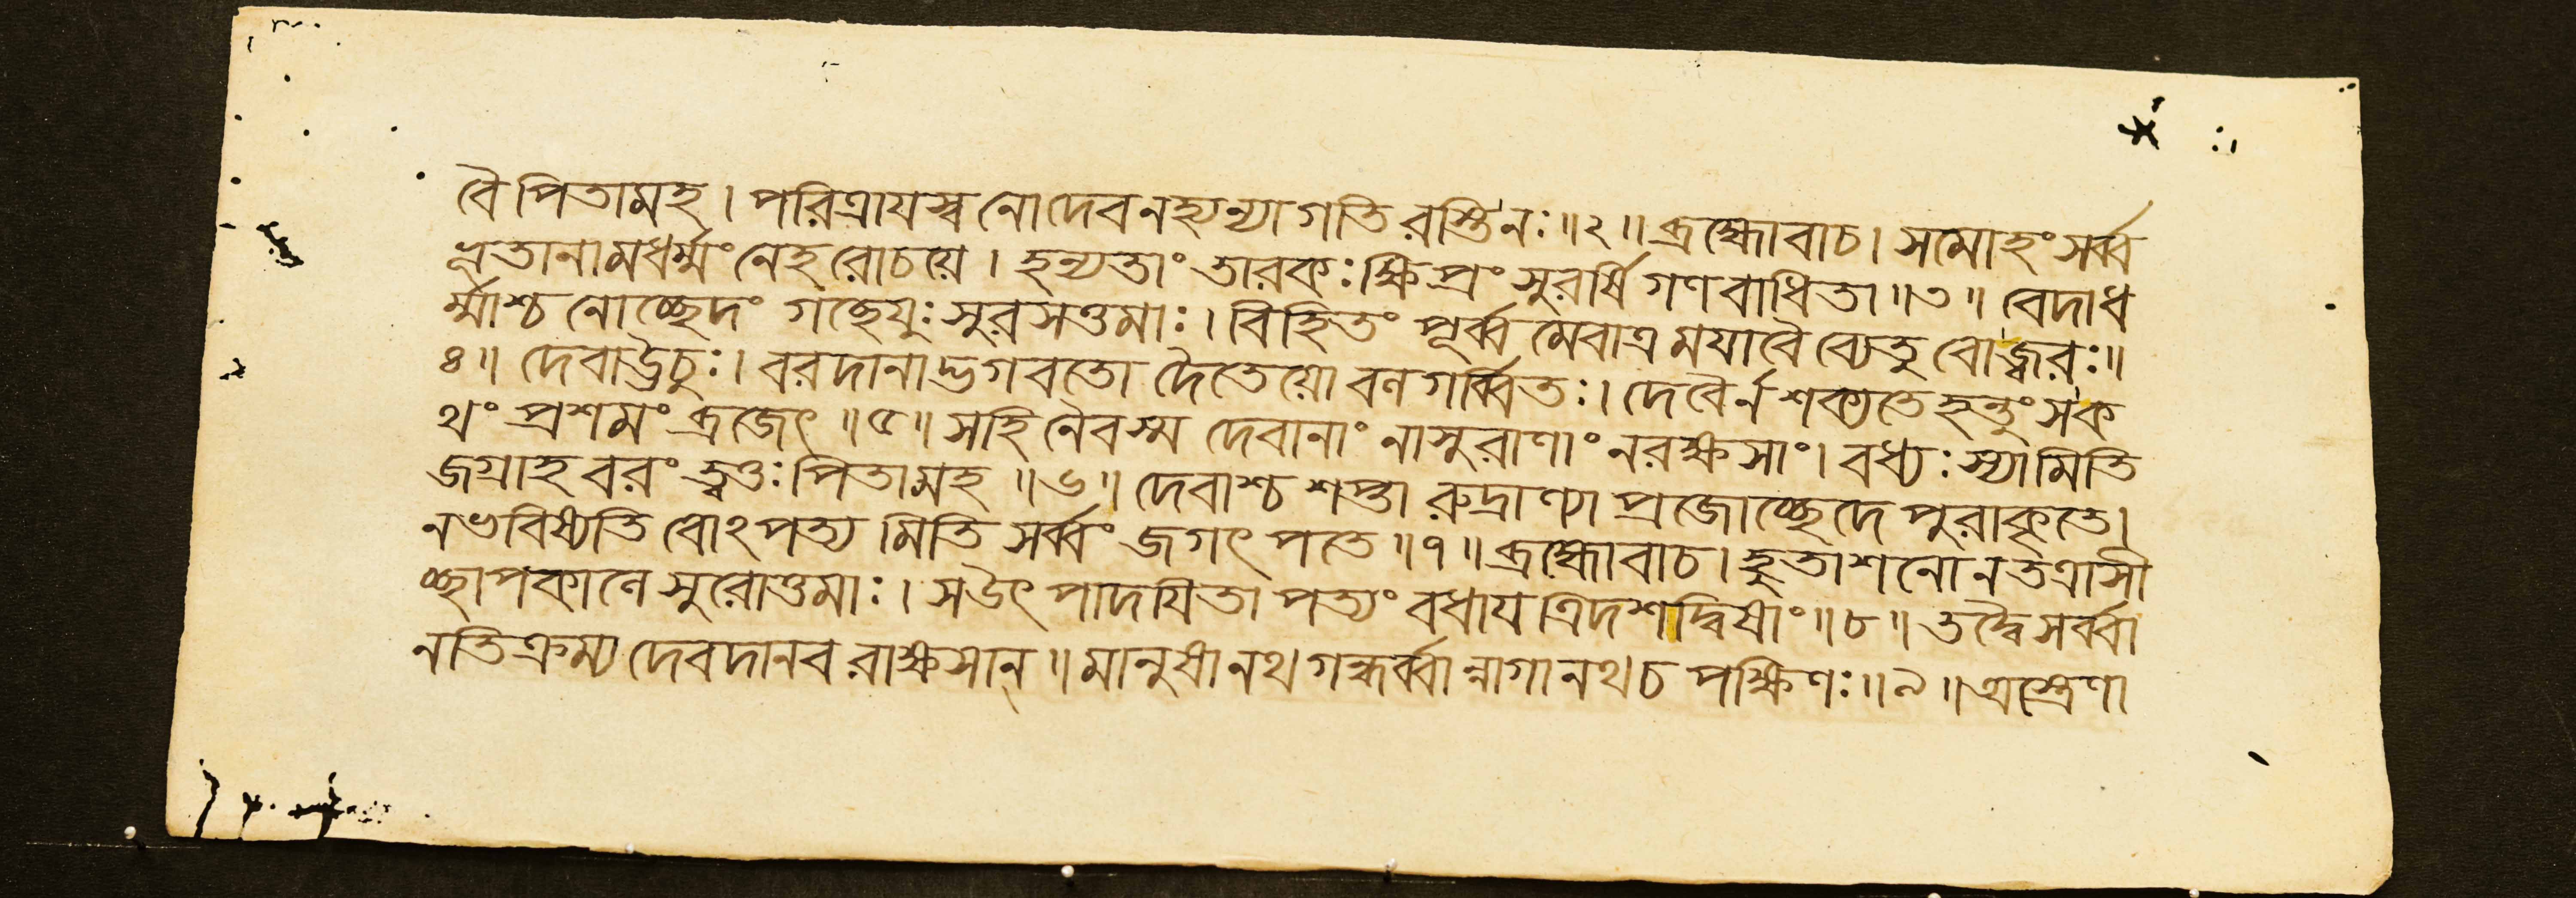 বৈ পিতামহ। পরিত্রাযস্ব নো দেব নহ্যন্যা গতি রস্তি নঃ॥২॥ ব্রহ্মোবাচ। সমোহং সর্ব্ব
ভূতানামধর্ম্মং নেহ রোচয়ে। হন্যতাং তারকঃ ক্ষিপ্রং সুরর্ষি গণবাধিতা॥৩॥ বেদাধ
র্ম্মাশ্চ নোচ্ছেদং গচ্ছেযুঃ সুরসত্তমাঃ। বিহিতং পূর্ব্ব মেবাত্র মযা বৈ ব্যেতু বো জ্বরঃ॥
৪॥ দেবাঊচুঃ। বরদানাদ্ভগবতো দৈতেয়ো বণ গর্ব্বিতঃ। দেবৈর্ন শক্যতে হন্তুং স ক
থং প্রশমং ব্রজেৎ॥৫॥ স হি নৈবস্ম দেবানাং নাসুরাণাং ন রক্ষসাং। বধ্যঃ স্যামিতি
জগ্রাহ বরং ত্বত্তঃ পিতামহ॥৬॥ দেবাশ্চ শপ্তা রুদ্রাণ্যা প্রজোচ্ছেদে পুরাকৃতে।
ন ভবিষ্যতি বোঽপত্য মিতি সর্ব্বং জগৎ পতে॥৭॥ ব্রহ্মোবাচ। হুতাশনো ন তত্রাসী
চ্ছাপকালে সুরোত্তমাঃ। স উৎ পাদযিতা পত্যং বধায ত্রিদশদ্বিষাং॥৮॥ তদ্বৈ সর্ব্বা
নতিক্রম্য দেবদানব রাক্ষসান্॥ মানুষানথ গন্ধর্ব্বান্নাগানথ চ পক্ষিণঃ॥৯॥ অস্ত্রেণা